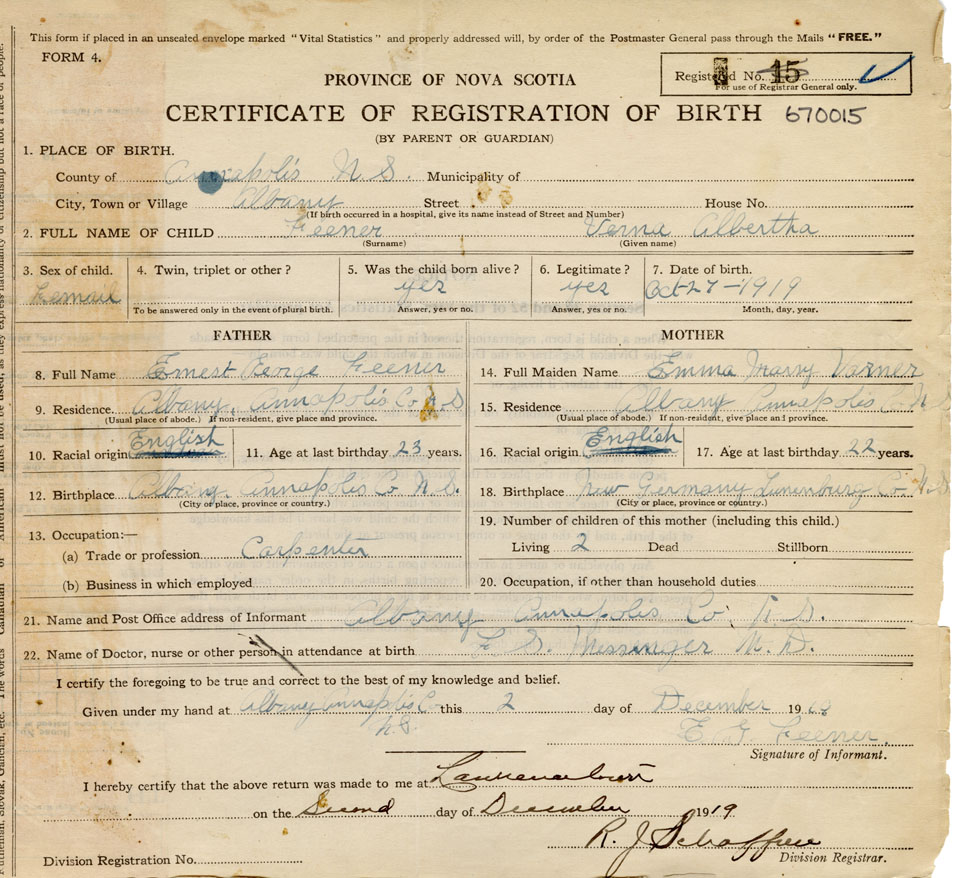 This form if placed in an unsealed envelope marked "Vital Statistics" and properly addressed will, by order of the Postmaster General pass through the Mails "FREE."
FORM 4.
Registered No. 15
For use of Registrar General only.
PROVINCE OF NOVA SCOTIA
CERTIFICATE OF REGISTRATION OF BIRTH 670015
(BY PARENT OR GUARDIAN)
1. PLACE OF BIRTH.
County of Annapolis N. S. Municipality of
City, Town or Village Albany Street House No.
(If birth occurred in a hospital, give its name instead of Street and Number)
2. FULL NAME OF CHILD Feener Vernie Albertha
(Surname) (Given name)
3. Sex of child. 4. Twin, triplet or other? 5. Was the child born alive? 6. Legitimate? 7. Date of birth.
Femail yes yes Oct-27-1919
To be answered only in the event of plural birth. Answer, yes or no. Answer, yes or no. Month, day, year.
FATHER MOTHER
8. Full Name Ernest George Feener 14. Full Maiden Name Emma Marry Varner
9. Residence Albany, Annapolis Co N.S 15. Residence Albany Annapolis Co N S
(Usual place of abode.) If non-resident, give place and province. (Usual place of abode.) If non-resident, give place and province.
10. Racial origin English 11. Age at last birthday 23 years. 16. Racial origin English 17. Age at last birthday 22 years.
12. Birthplace Albany, Annapolis Co N. S. 18. Birthplace New Germany Lunenburg Co. N. S
(City or place, province or country.) (City or place, province or country.)
13. Occupation:— 19. Number of children of this mother (including this child.)
(a) Trade or profession Carpenter Living 2 Dead Stillborn
(b) Business in which employed 20. Occupation, if other than household duties
21. Name and Post Office address of Informant Albany Annapolis Co N. S.
22. Name of Doctor, nurse or other person in attendance at birth S. Messinger M. D.
I certify the foregoing to be true and correct to the best of my knowledge and belief.
Given under my hand at Albany Annapolis Co this 2 day of December 19
N.S.
E. G. Feener.
Signature of Informant.
I hereby certify that the above return was made to me at Lawrencetown
on the Second day of December 1919
R. J. Schaffner
Division Registrar.
Division Registration No.